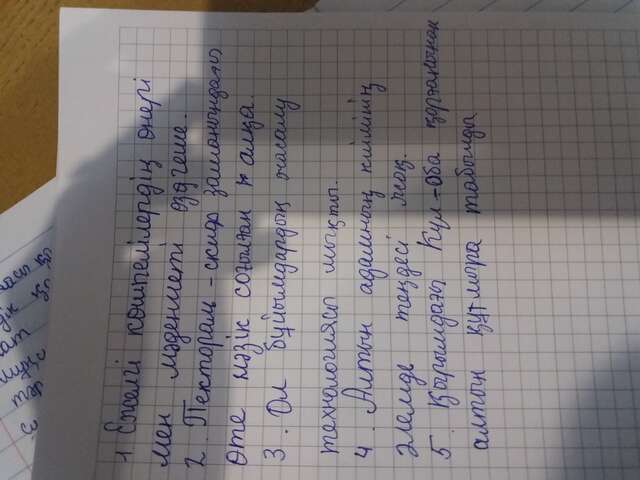 1 Ежелгі көшпелілердің өнері
мен мәдениеті өзгеше.
2. Пектораль - скиф заманындағы
өте нәзік соғылған алқа.
3. Ол бұйымдардың жасалу
технологиясы мықты.
4. Алтын адамның киімінің
әлемде теңдесі жоқ.
5. Қырымдағы Күл-Оба қорғанынан
алтын құтмыра табылды